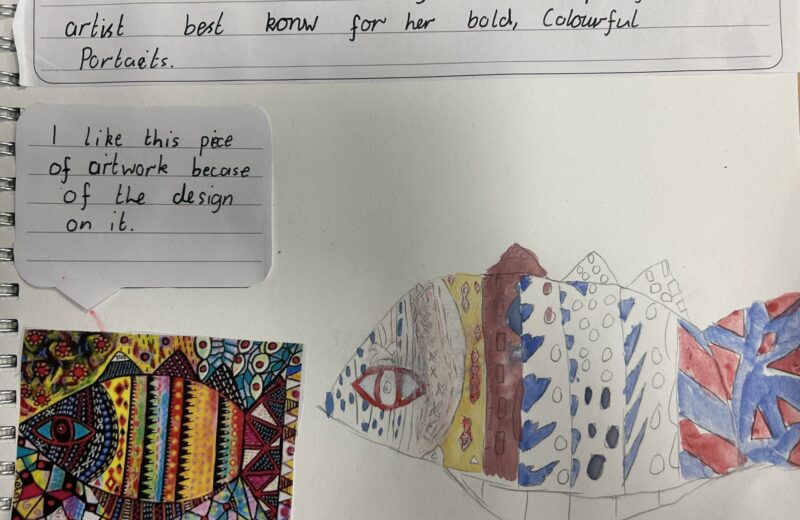 artist best konw for her bold, Colourful
Portaits.
I like this piece
of artwork becase
of the design
on it.